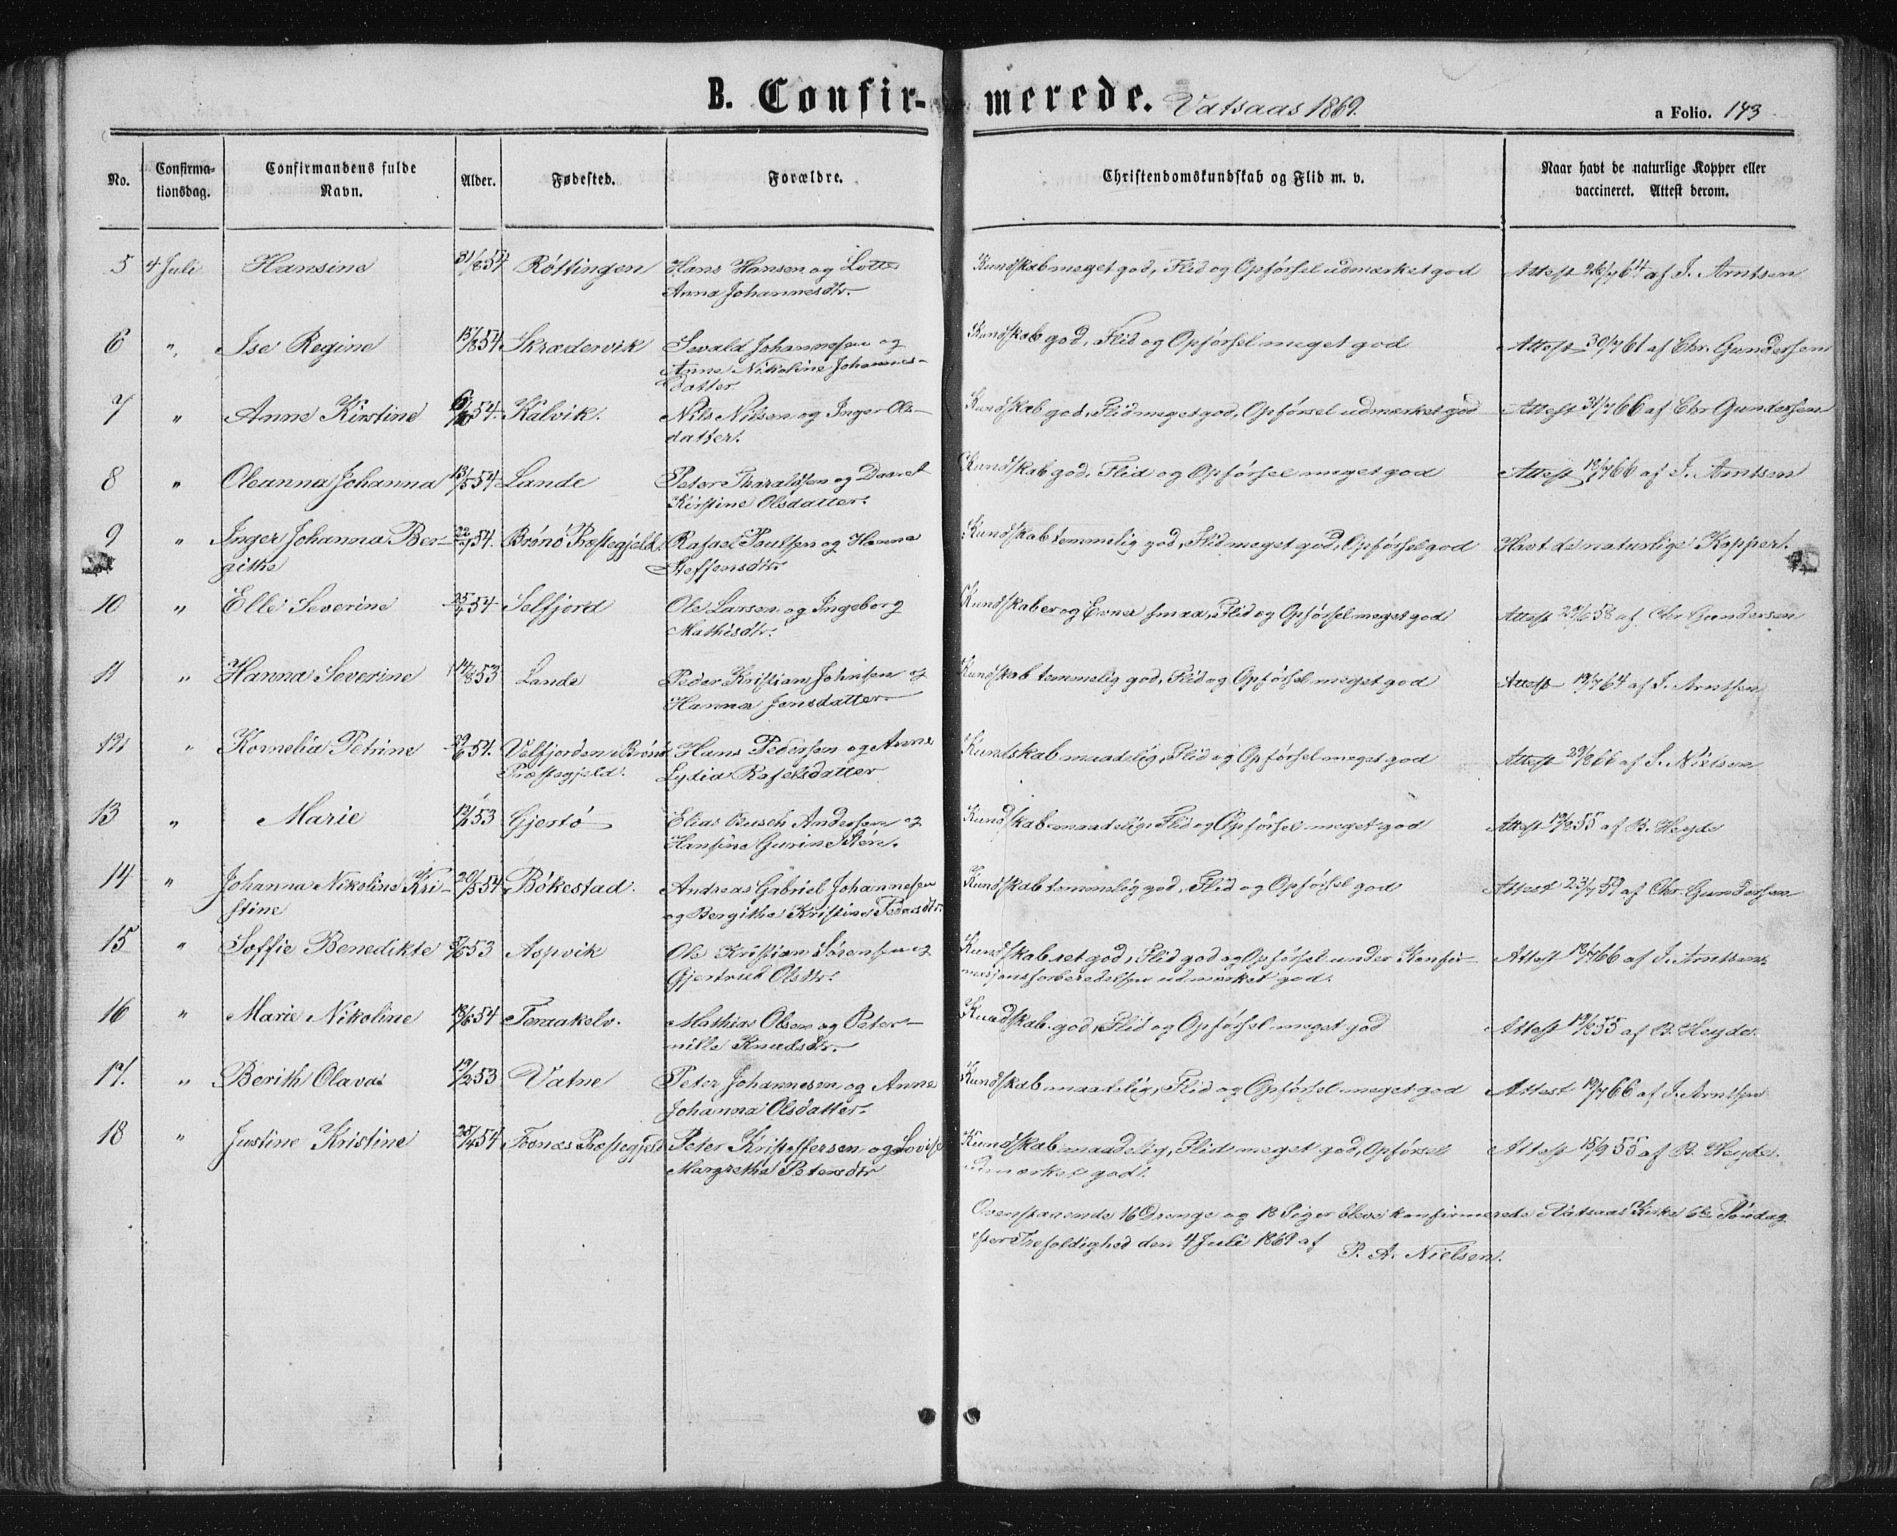 B. Confirmerede. Vatsaas 1869.
a Folio. 143
No. Confirmationsdag. Confirmandens fulde Navn. Alder. Fødested. Forældre. Christendomskundskab og Flid m. v. Naar havt de naturlige Kopper eller vaccineret. Attest derom.
5 4 Juli Hansine 31/8 54 Røttingen Hans Hansen og Lotte Kundskab meget god, Flid og Opførsel udmærket god Attest 26/7 64 af J. Arntsen
Anna Johannesdtr.
6 " Ise Regine 15/8 54 Skrædervik Sevald Johannesen og Kundskab god, Flid og Opførsel meget god Attest 30/7 61 af Chr. Gundersen
Anne Nikoline Johannes-
datter
7 " Anne Kirstine 54. Kalvik. Nils Nilsen og Inger Ols- Kundskab god, Flid meget god, Opførsel udmærket god Attest 31/7 66 af Chr Gundersen
datter.
8 " Oleanna Johanna 13/5 54 Lande Peter Tharaldsen og Daaret Kundskab god, Flid og Opførsel meget god Attest 19/7 66 af J. Arntsen
Kirstine Olsdatter.
9 " Inger Johanna Ber- 54. Brønø Præstegjeld. Rafael Paulsen og Hanna Kundskab temmelig god, Flid meget god, Opførsel god Havt de naturlige Kopper.
githe Steffensdtr.
10 " Elle Severine 54 Selfjord Ole Larsen og Ingeborg Kundskaber og Evner smaa, Flid og Opførsel meget god Attest 29/6 58 af Chr Gundersen
Mathisdtr.
11 " Hanna Severine 14/8 53 Lande Peder Kristian Johnsen og Kundskab temmelig god, Flid og Opførsel meget god Attest 19/7 64 af J. Arntsen
Hanna Jonsdatter
12 " Kornelia Petrine 29/6 54. Velfjorden i Brønø Hans Pedersen og Anne Kundskab maadelig, Flid og Opførsel meget god Attest 29/8 66 af S. Nielsen
Præstegjeld. Lydia Rafelsdatter
13 " Marie 53 Gjertø Elias Busch Andersen og Kundskab maadelig, Flid og Opførsel meget god Attest 19/8 55 af B. Heyde
Hansine Gurine Stén.
14 " Johanna Nikoline Kri- 20/5 54 Bøkestad. Andreas Gabriel Johannesen Kundskab temmelig god, Flid og Opførsel god Attest 23/7 59 af Chr. Gundersen
stine og Bergithe Kristine Pedersdtr.
15 " Soffie Benedikte 53 Aspvik Ole Kristian Sørensen og Kundskab ret god, Flid god og Opførsel under Konfir- Attest 19/7 66 af J. Arntsen
Gjertrud Olsdtr. masjonsforberedelsen udmærket god.
16 " Marie Nikoline 18/6 54 Teraakelv. Mathias Olsen og Peter- Kundskab god, Flid og Opførsel meget god Attest 19/8 55 af B. Heyde.
nille Knudsdtr.
17. " Berith Olava 19/2 53 Vatne Peter Johannesen og Anne Kundskab maadelig, Flid og Opførsel meget god Attest 19/7 66 af J. Arntsen
Johanna Olsdatter.
18 " Justine Kristine 25/4 54 Trænæs Præstegjeld Peter Kristoffersen og Lovise Kundskab maadelig, Flid meget god, Opførsel Attest 15/9 55 af B. Heyde.
Margrethe Petersdtr udmærket god.
Ovenstaaende 16 Drenge og 18 Piger bleve konfirmerede i Vatsaas Kirke 6te Søndag
efter Trefoldighed den 4 Juli 1869 af P. A. Nielsen.